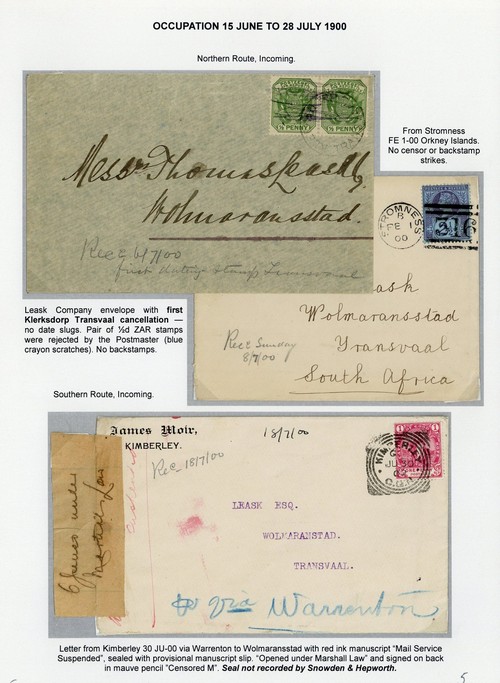 OCCUPATION 15 JUNE TO 28 JULY 1900
Northern Route, Incoming.
½ PENNY
½ PENNY
Messrs Thomas Leask & Co
Wolmaransstad.
Rec'd 6/7/00
first
stamp
From Stromness
FE 1-00 Orkney Islands.
No censor or backstamp
strikes.
STROMNESS
B
FE 1
00
Leask
Wolmaransstad
Transvaal
South Africa
Recd Sunday
8/7/00
Leask Company envelope with first
Klerksdorp Transvaal cancellation —
no date slugs. Pair of ½d ZAR stamps
were rejected by the Postmaster (blue
crayon scratches). No backstamps.
Southern Route, Incoming.
James Moir,
KIMBERLEY.
18/7/00
Rec 18/7/00
KIMBERLEY
JU 30
C.G.H.
LEASK ESQ.
WOLMARANSTAD.
TRANSVAAL.
via Warrenton
under
Letter from Kimberley 30 JU-00 via Warrenton to Wolmaransstad with red ink manuscript "Mail Service
Suspended", sealed with provisional manuscript slip. "Opened under Marshall Law" and signed on back
in mauve pencil "Censored M". Seal not recorded by Snowden & Hepworth.
5